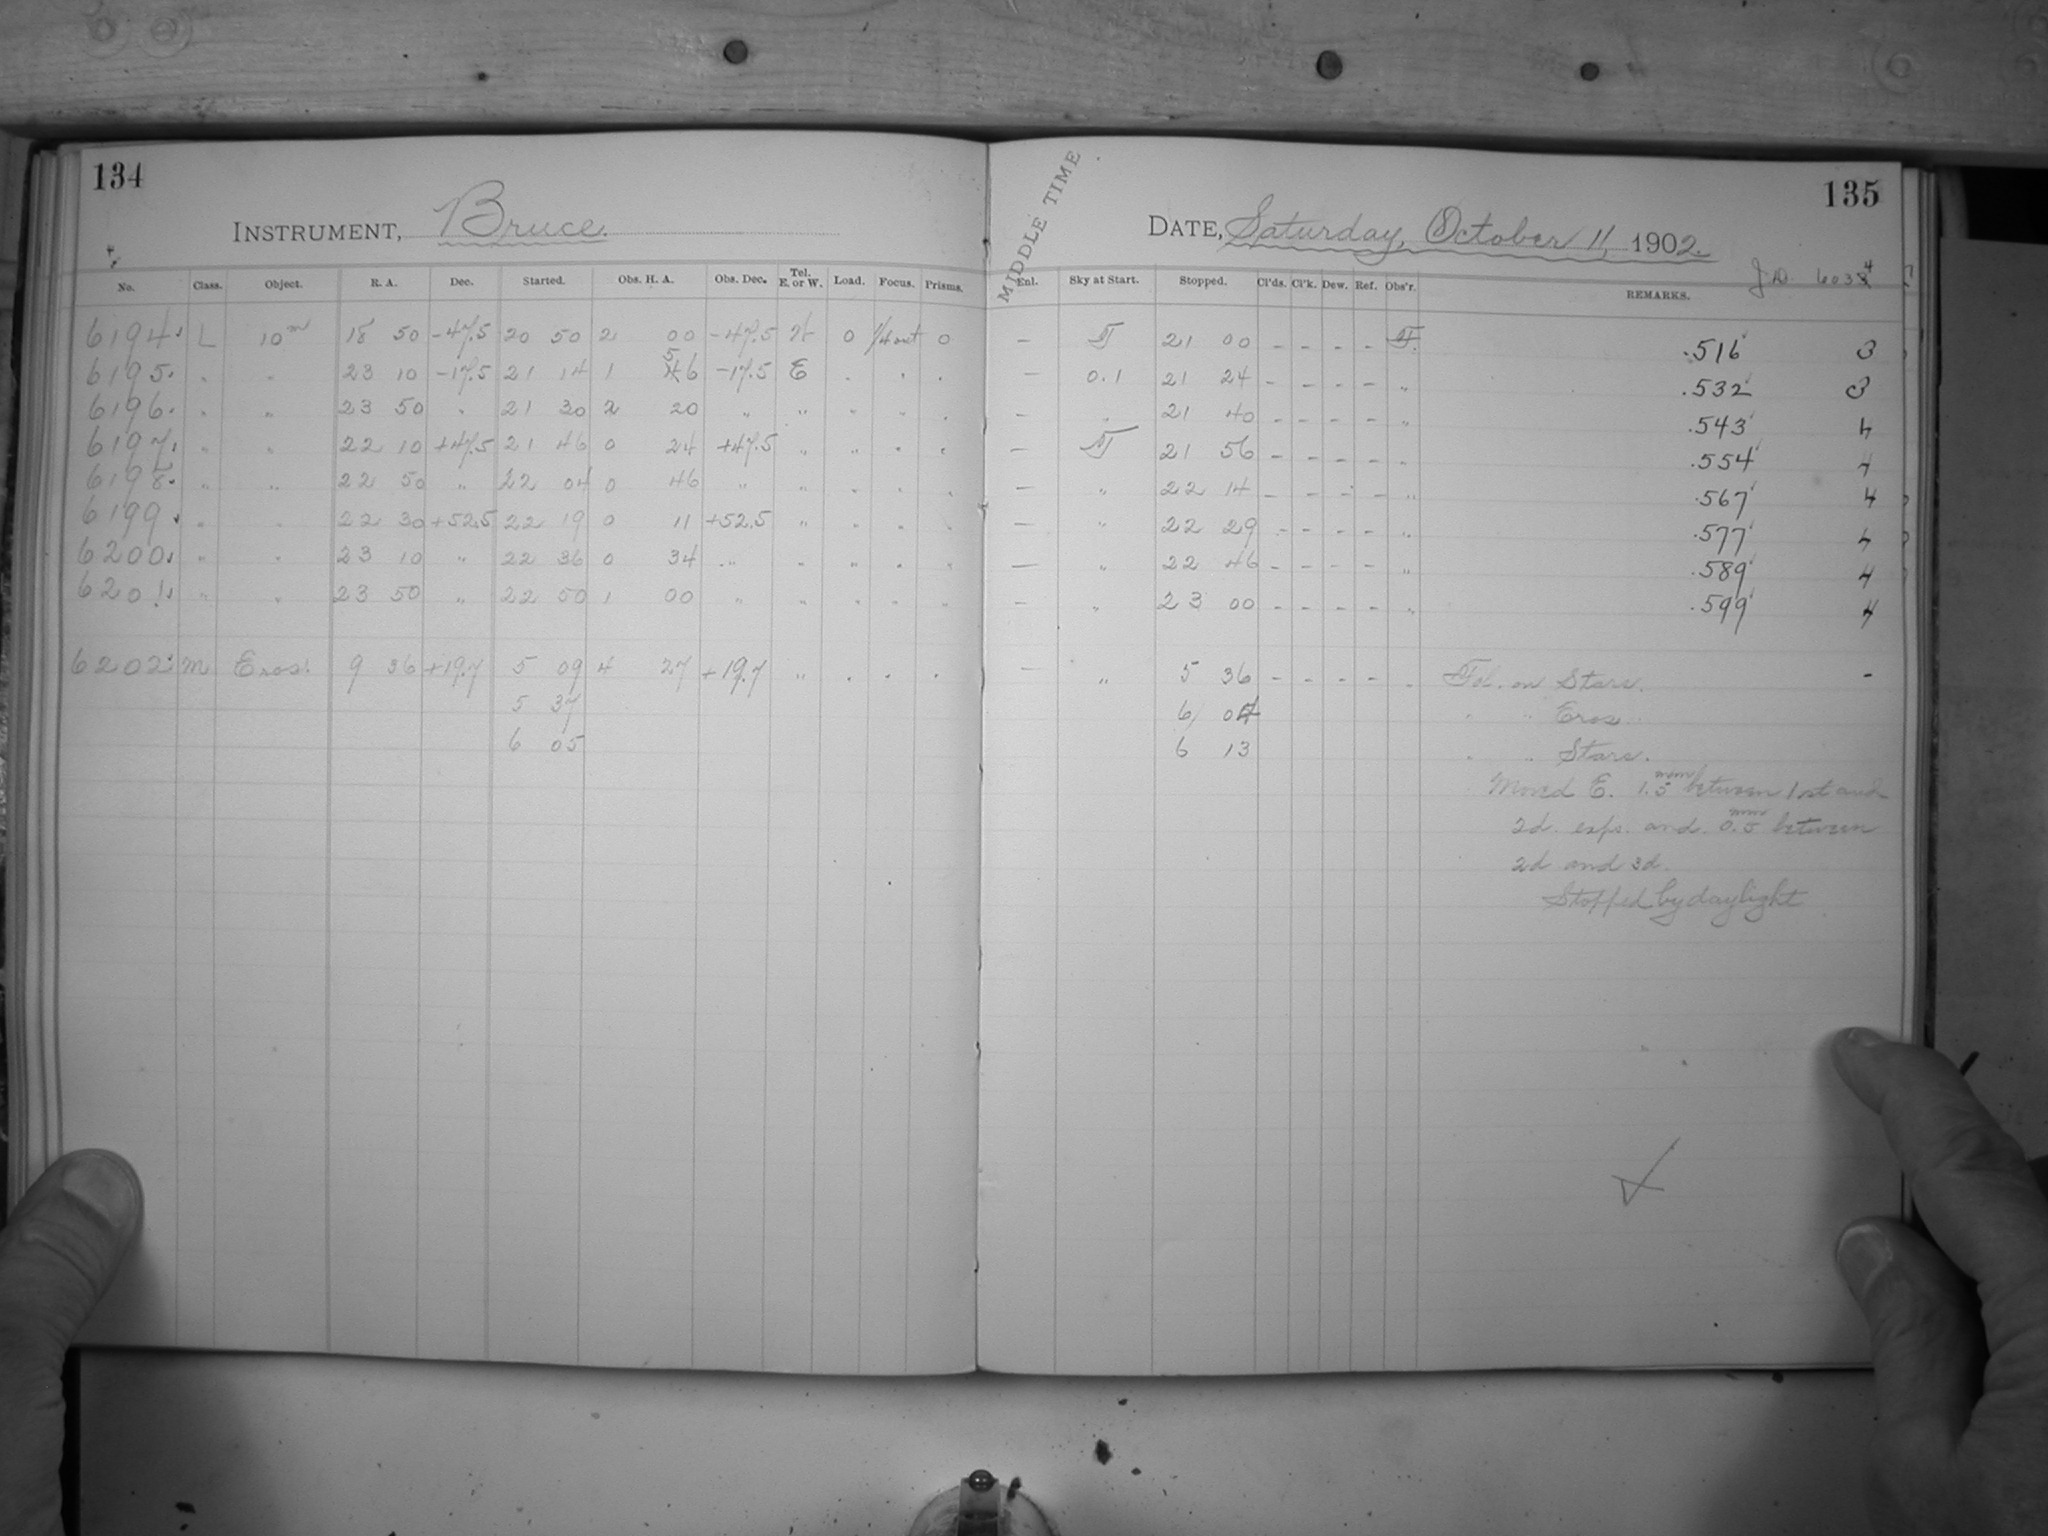 134
INSTRUMENT, Bruce.
No. Class. Object. R. A. Dec. Started. Obs. H. A. Obs. Dec. Tel. E. or W. Load. Focus. Prisms.
6194 L 10m 18 50 -47.5 20 50 2 00 -47.5 W 0 1/4 out 0
6195 " " 23 10 -17.5 21 14 1 56 -17.5 E " " "
6196 " " 23 50 " 21 30 2 20 " " " " "
6197 " " 22 10 +47.5 21 46 0 24 +47.5 " " " "
6198 " " 22 50 " 22 04 0 46 " " " " "
6199 " " 22 30 +52.5 22 19 0 11 +52.5 " " " "
6200 " " 23 10 " 22 36 0 34 " " " " "
6201 " " 23 50 " 22 50 1 00 " " " " "
6202 M Eros. 9 36 +19.7 5 09 4 27 +19.7 " " " "
5 37
6 05
135
MIDDLE TIME
DATE, Saturday, October 11, 1902.
J.D. 6034
Enl. Sky at Start. Stopped. Cl'ds. Cl'k. Dew. Ref. Obs'r. REMARKS.
- 21 00 - - - - .516 3
- 0.1 21 24 - - - - " .532 3
- " 21 40 - - - - " .543 4
- 21 56 - - - - " .554 4
- " 22 14 - - - - " .567 4
- " 22 29 - - - - " .577 4
- " 22 46 - - - - " .589 4
- " 23 00 - - - - " .599 4
- " 5 36 - - - - " Fol. on Stars. -
6 04 " " Eros
6 13 " " Stars.
Moved E. 1.5mm between 1st and
2d. exps. and 0.5mm between
2d and 3d.
Stopped by daylight